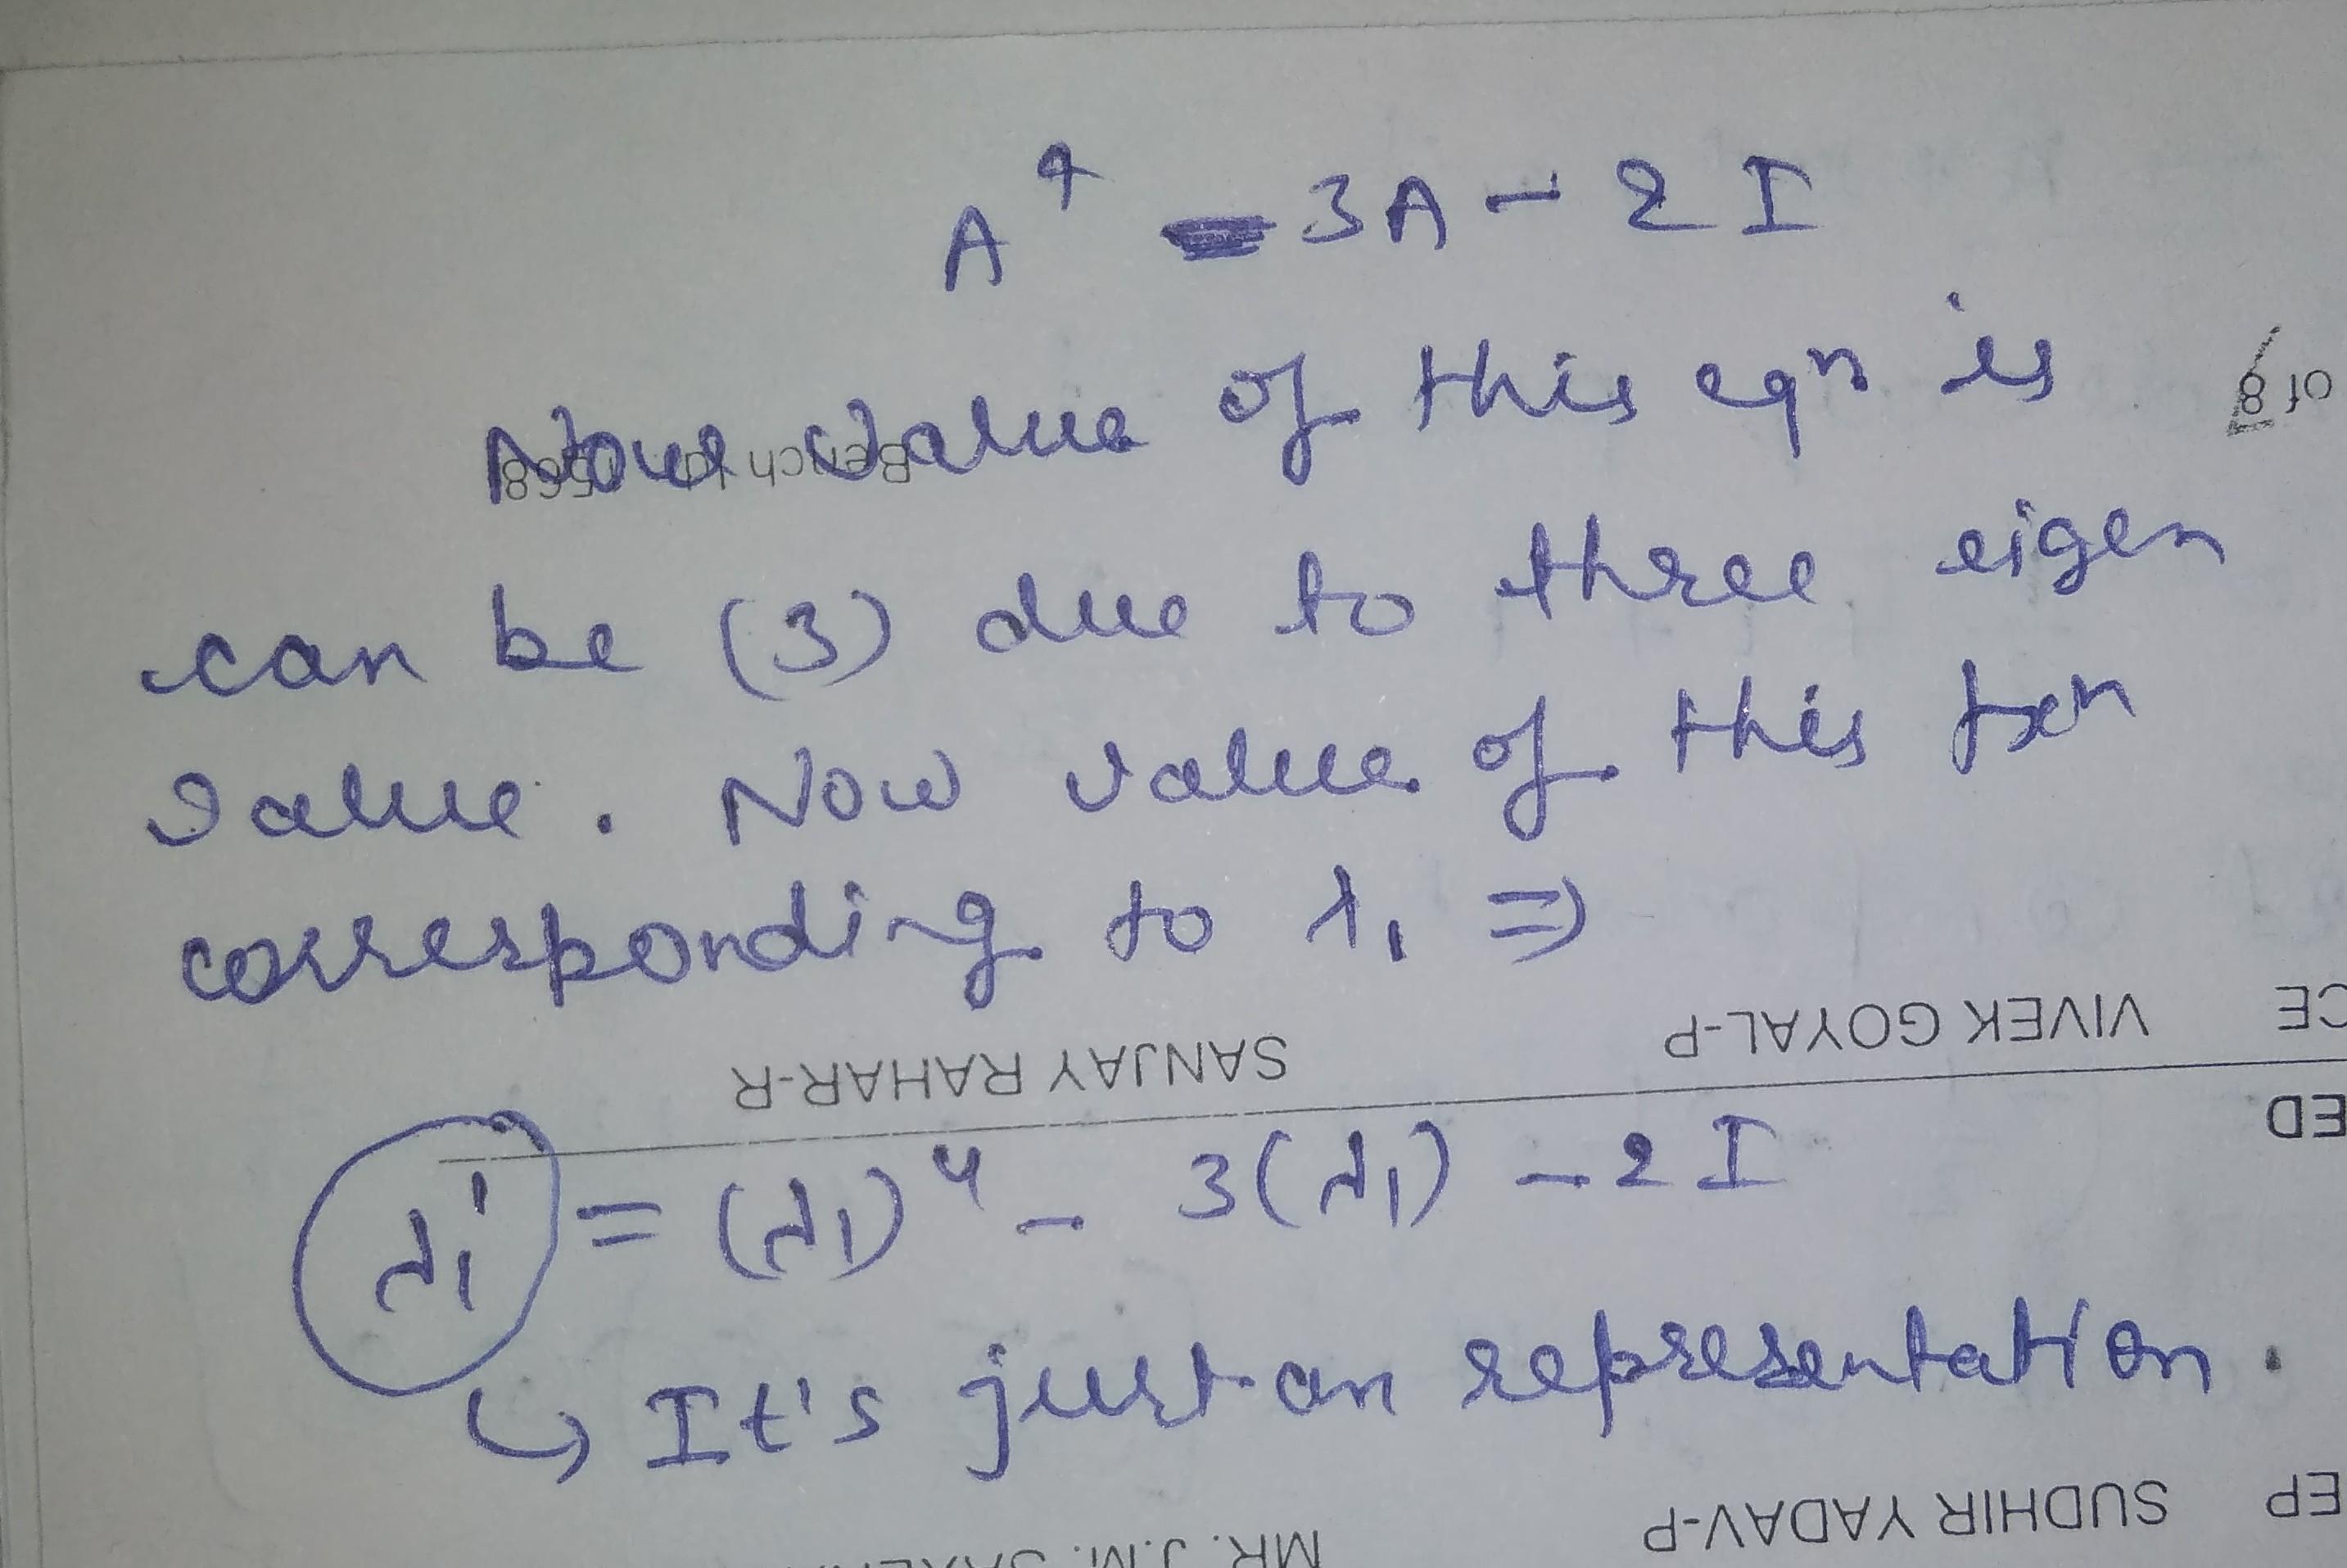 A⁴ - 3A - 2I
of 8
Now value of this eqn is
Bench Id 568
can be (3) due to three eigen
value. Now value of this fxn
corresponding to λ₁ ⇒
CE VIVEK GOYAL-P SANJAY RAHAR-R
ED
λ₁' = (λ₁)⁴ - 3(λ₁) - 2I
↳ It's just an representation.
EP SUDHIR YADAV-P MR. J.M.